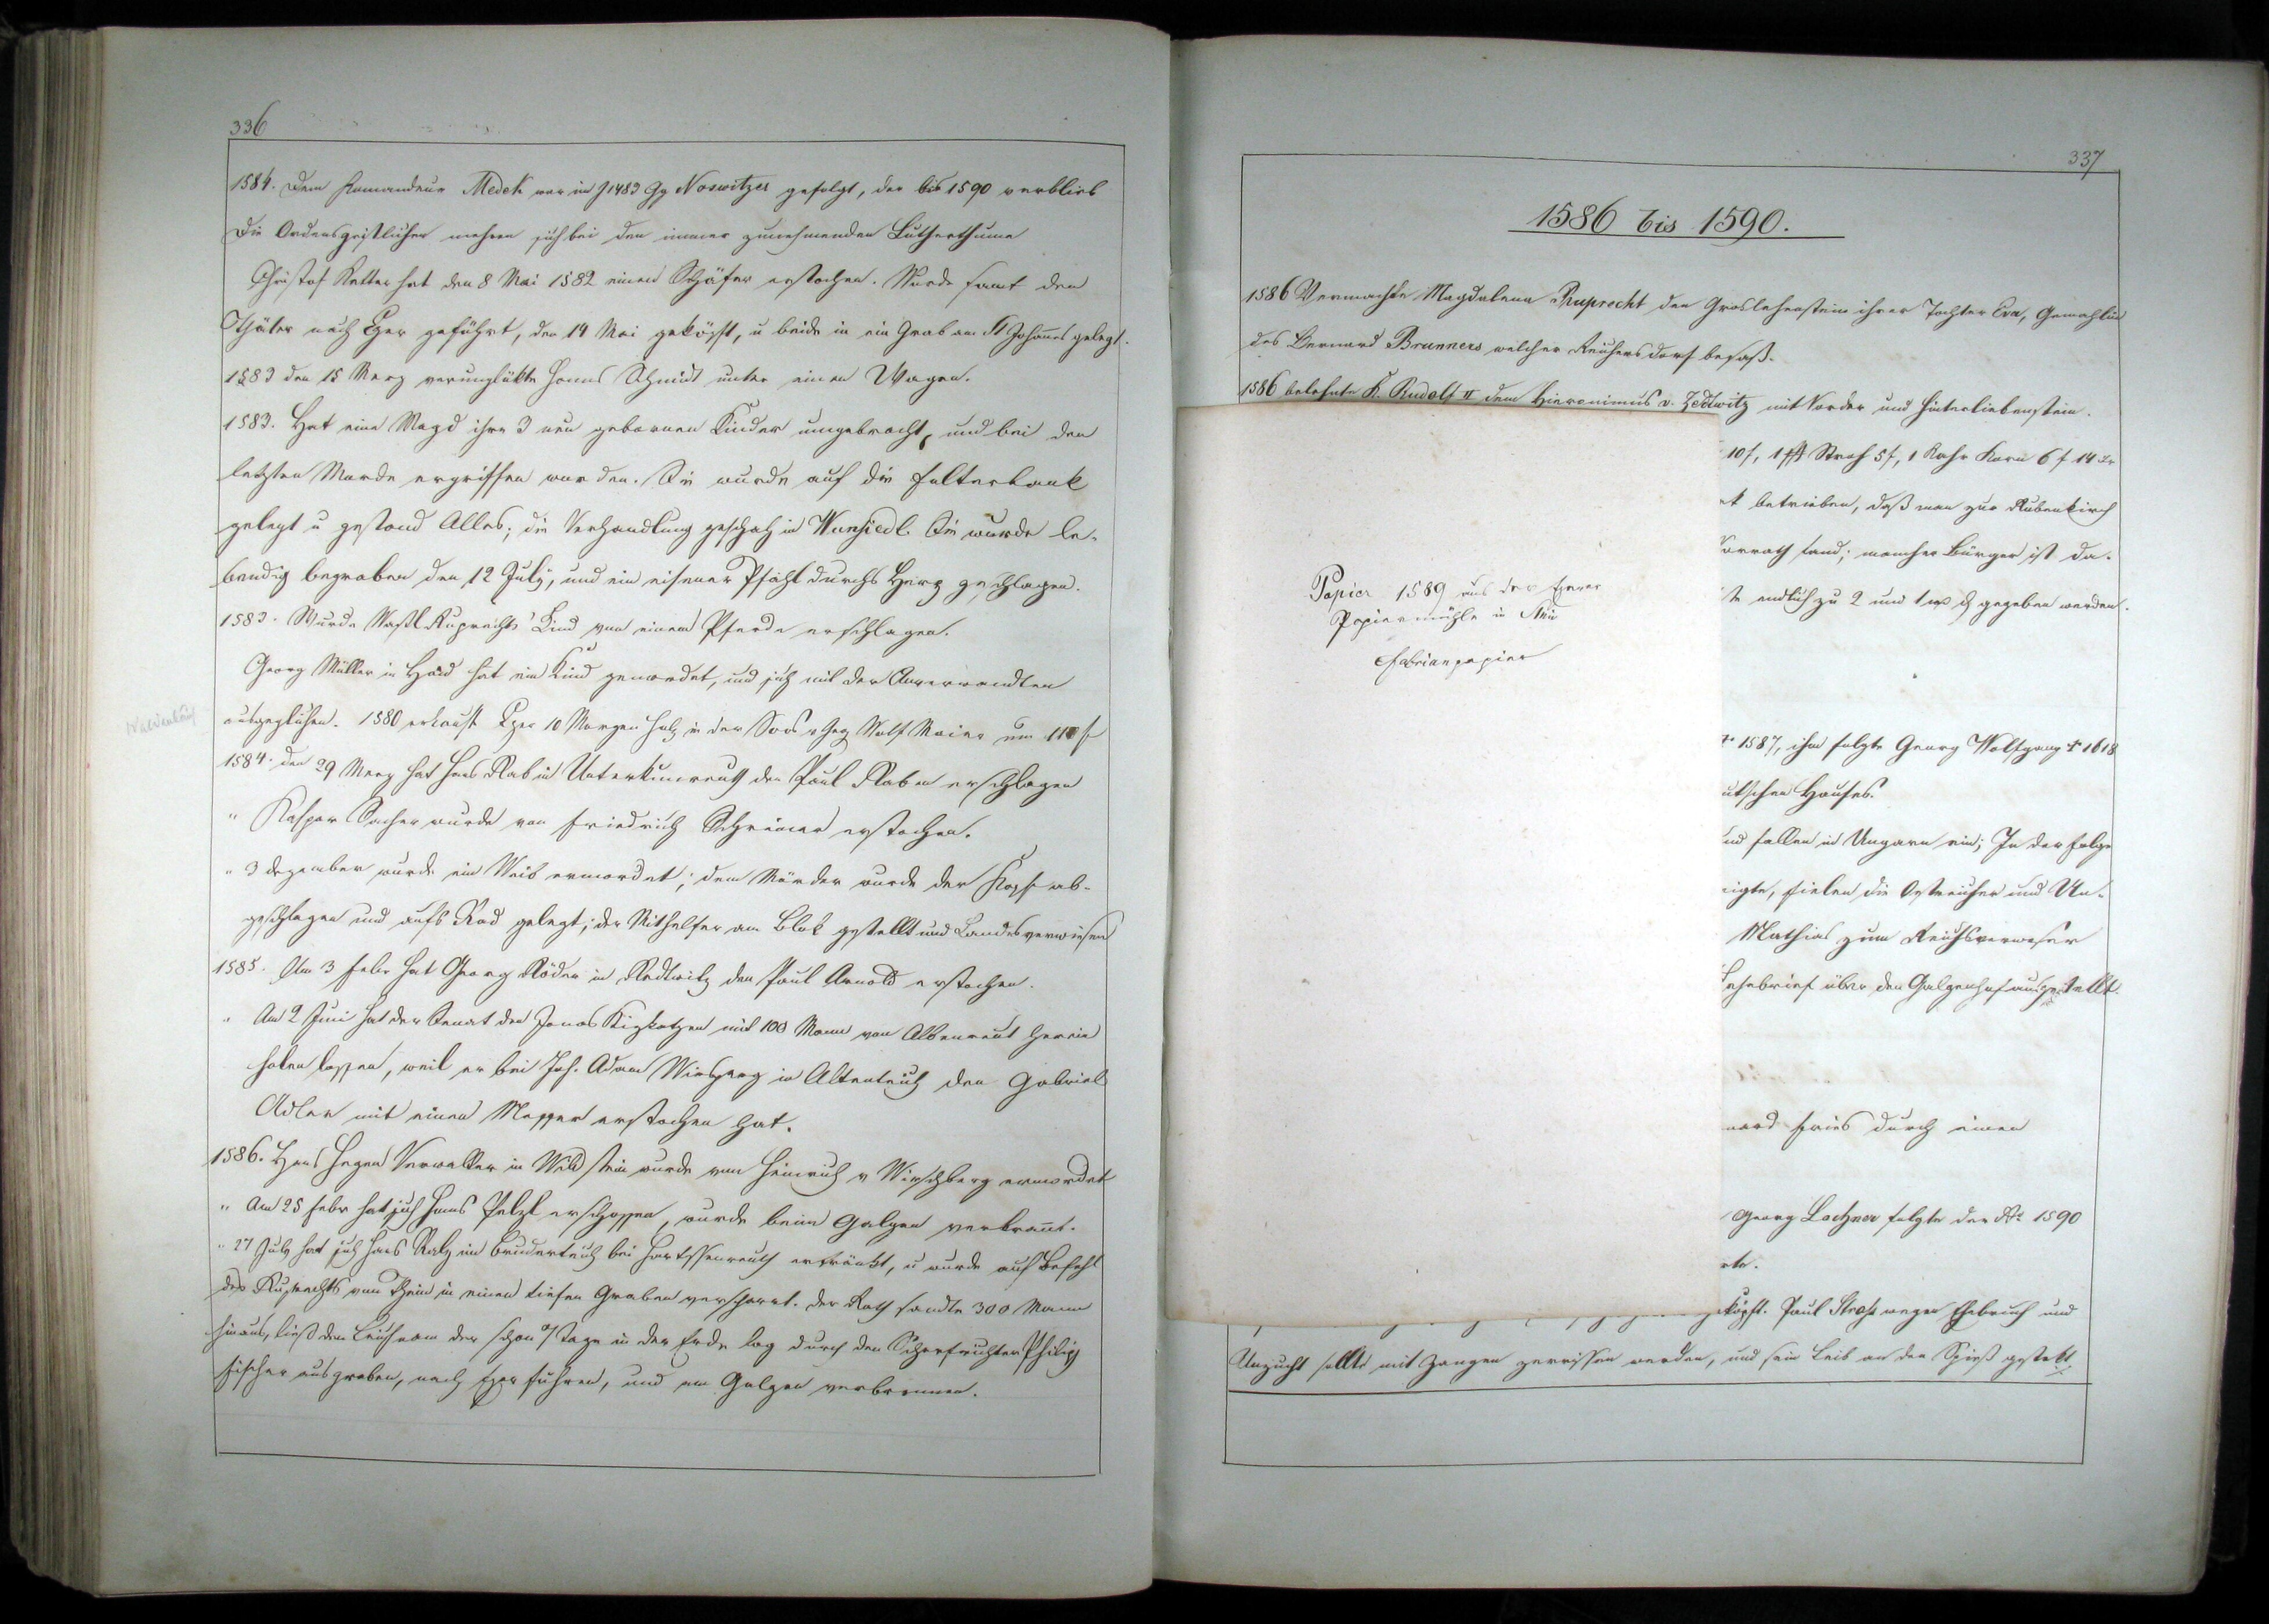 336
1584. Dem Komandeur Medek war im J 1483 Gg Noswitzer gefolgt, der bis 1590 verblieb
Die Ordensgeistlichen mehren sich bei den immer zunehmenden Lutherthume
Christof Ketter hat den 8 Mai 1582 einen Schäfer erstochen. Wurde samt den
Thäter nach Eger geführt, den 14 Mai geköpft, u beide in ein Grab am St Johannes gelegt.
1583 den 15 Merz verunglükte Hanns Schmidt unter einen Wagen.
1583. Hat eine Magd ihre 3 neu gebornen Kinder umgebracht, und bei den
letzten Morde ergriffen worden. Sie wurde auf die Folterbank
gelegt u gestand Alles; die Verhandlung geschah in Wunsiedl. Sie wurde le-
bendig begraben den 12 July, und ein eisener Pfahl durchs Herz geschlagen.
1583. Wurde Wastl Ruprechts Kind von einem Pferde erschlagen.
Georg Müller in Haid hat ein Kind gemordet, und sich mit der Anverwandten
ausgeglichen. 1580 erkauft Eger 10 Morgen Holz in der Soos v Gg Wolf Maier um 110 f
1584. den 29 Merz hat Hans Rab in Unterkunreuth den Paul Raben erschlagen
" Kaspar Sacher wurde von Friedrich Schreiner erstochen.
" 3 Dezember wurde ein Weib ermordet; dem Mörder wurde der Kopf ab-
geschlagen und aufs Rad gelegt; der Mithelfer am Blok gestellt und Landesverwiesen
1585. Am 3 Febr hat Georg Röder in Redtwitz den Paul Arnold erstochen.
" Am 2 Juni hat der Senat den Jonas mit 100 Mann von Albenreut herein
holen lassen, weil er bei Joh. Adam Wirsperg in Altenteich den Gabriel
Adler mit einen Messer erstochen hat.
1586. Hans Hagen Verwalter in Wildstein wurde vom Heinrich v Wirschberg ermordet
" Am 25 Febr hat sich Hanns Pelzl erschossen, wurde beim Galgen verbrannt.
" 27 July hat sich Hans Ratz im Bruderteich bei Hartessenreuth ertränkt, u wurde auf Befehl
des Ruprechts von Thein in einen tiefen Graben verscharrt. Der Rath sandte 300 Mann
hinaus, ließ den Leichnam der schon 9 Tage in der Erde lag durch den Scharfrichter Philip
Fischer ausgraben, nach Eger führen, und am Galgen verbrennen.
337
1586 bis 1590.
1586 Vermachte Magdalena Ruprecht den Groslehenstein ihrer Tochter Eva, Gemahlin
des Bernard Brunners welcher Reichersdorf besaß.
1586 belehnte K. Rudolf II dem Hieronimus v. Zedtwitz mit Vorder und Hinterliebenstein.
10 f, 1 Stroh 5 f, 1 Kahr Korn 6 f 14 xr
rk betrieben, daß man zur Rubenkirch
Vorrath fand; mancher Bürger ist da-
te endlich zu 2 und 1 gegeben werden.
Papier 1589 aus der Egerer
Papiermühle in
Fabrianpapier
† 1587, ihm folgte Georg Wolfgang † 1618
utschen Hauses.
und fallen in Ungarn ein; In der Folge
nigte, fielen die Östreicher und Un-
Mathias zum Reichsverweser
Lehebrief über den Galgenhof ausgestellt.
nard Fries durch einen
Georg Lochner folgte den 1590
rte.
eköpft. Paul Stroß wegen Ehebruch und
Unzucht sollte mit Zangen zerrissen werden, und sein Leib an den Spieß gestekt